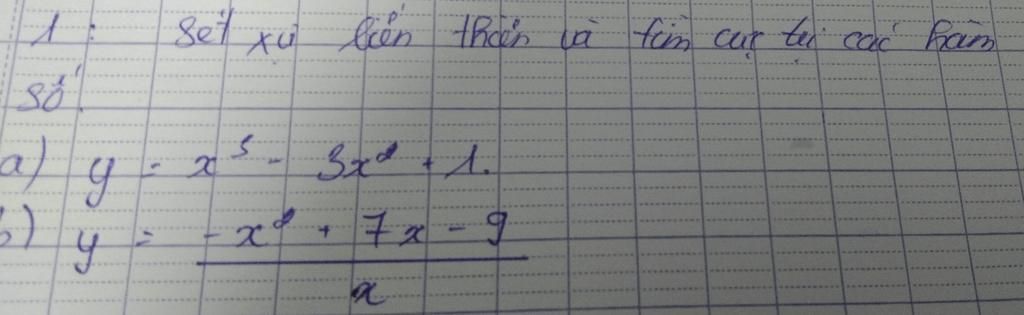 1: Sét xự biến thiên và tìm cực trị các hàm
số.
a) y = x³ - 3x² + 1.
b) y = \frac{-x² + 7x - 9}{x}